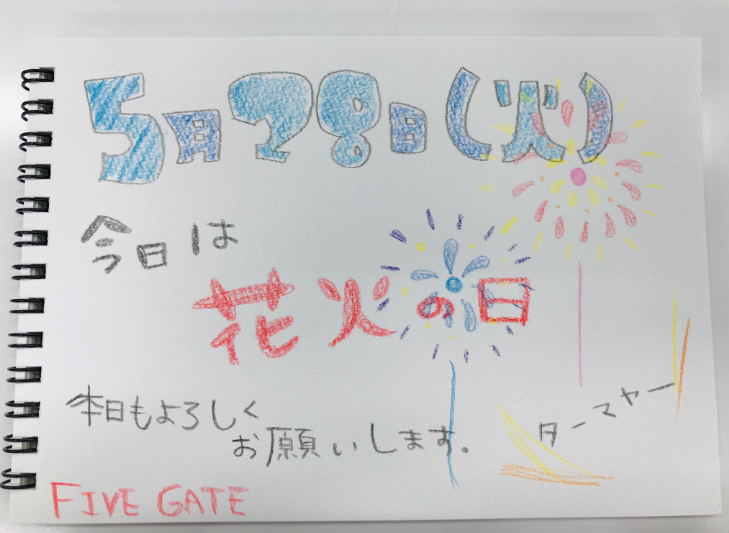 5月28日(火)
今日は
花火の日
本日もよろしく
お願いします。
ターマヤー
FIVE GATE